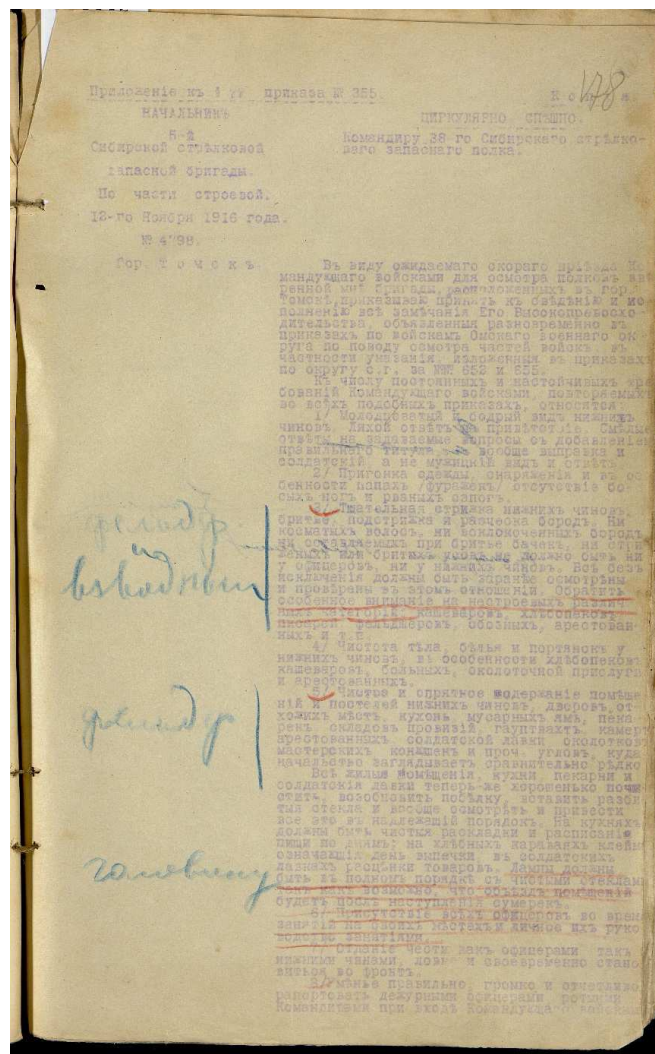 178
Приложеніе къ 1 приказа № 355.
Копія
НАЧАЛЬНИКЪ
5-й
Сибирской стрѣлковой
запасной бригады.
По части строевой.
12-го Ноября 1916 года.
№ 4798.
Гор. Томскъ.
ЦИРКУЛЯРНО СПѢШНО.
Командиру 38-го Сибирскаго стрѣлко-
ваго запаснаго полка.
Въ виду ожидаемаго скораго пріѣзда Ко
мандующаго войсками для осмотра полковъ ввѣ
ренной мнѣ бригады, расположенныхъ въ гор.
Томскѣ, приказываю принять къ свѣдѣнію и ис
полненію всѣ замѣчанія Его Высокопревосхо-
дительства, объявленныя разновременно въ
приказахъ по войскамъ Омскаго военнаго ок
руга по поводу осмотра частей войскъ, въ
частности указанія, изложенныя въ приказахъ
по округу с.г. за №№ 653 и 655.
Къ числу постоянныхъ и настойчивыхъ тре
бованій Командующаго войсками, повторяемыхъ
во всѣхъ подобныхъ приказахъ, относятся
1/ Молодцоватый и бодрый видъ нижнихъ
чиновъ. Лихой отвѣтъ на привѣтствіе. Смѣлые
отвѣты на задаваемые вопросы съ добавленіемъ
правильнаго титула, и вообще выправка и
солдатскій, а не мужицкій видъ и отвѣтъ
2/ Пригонка одежды, снаряженія и въ ос
бенности папахъ /фуражекъ/ отсутствіе бо-
сыхъ ногъ и рваныхъ сапогъ.
3/ Тщательная стрижка нижнихъ чиновъ,
бритье, подстрижка и расческа бородъ. Ни
косматыхъ волосъ, ни всклокоченныхъ бородъ,
ни оставляемыхъ при бритье бачекъ, ни стри
женыхъ или бритыхъ усовъ не должно быть ни
у офицеровъ, ни у нижнихъ чиновъ. Всѣ безъ
исключенія должны быть заранѣе осмотрѣны
и провѣрены въ этомъ отношеніи. Обратить
особенное вниманіе на нестроевыхъ различ
ныхъ категорій кашеваровъ, хлѣбопековъ
писарей фельдшеровъ, обозныхъ, арестован-
ныхъ и т.п.
4/ Чистота тѣла, бѣлья и портянокъ у
нижнихъ чиновъ, въ особенности хлѣбопековъ
кашеваровъ, больныхъ, околоточной прислуги
и арестованныхъ.
5/ Чистое и опрятное содержаніе помѣще
ній и постелей нижнихъ чиновъ, дворовъ, от
хожихъ мѣстъ, кухонь, мусорныхъ ямъ, пека
рень, складовъ провизіи, гауптвахтъ, камеръ
арестованныхъ, солдатской лавки, околотковъ
мастерскихъ, конюшенъ и проч. угловъ, куда
начальство заглядываетъ сравнительно рѣдко
Всѣ жилыя помѣщенія, кухни, пекарни и
солдатскія лавки теперь-же хорошенько почи
стить, возобновить побѣлку, вставить разби
тыя стекла и вообще осмотрѣть и привести
все это въ надлежащій порядокъ. На кухняхъ
должны быть чистыя раскладки и расписанія
пищи по днямъ; на хлѣбныхъ караваяхъ клейма
означающія день выпечки, въ солдатскихъ
лавкахъ расцѣнки товаровъ. Лампы должны
быть въ полномъ порядкѣ съ чистыми стеклами
такъ какъ возможно, что объѣздъ помѣщеній
будетъ послѣ наступленія сумерекъ.
6/ Присутствіе всѣхъ офицеровъ во время
занятій на своихъ мѣстахъ и личное ихъ руко
водство занятіями.
7/ Отданіе чести какъ офицерами такъ
нижними чинами, ловко и своевременно стано
виться во фронтъ.
8/ Умѣнье правильно, громко и отчетливо
рапортовать дежурными офицерами, ротными
Командирами при входѣ Командующаго войсками
взводнымъ